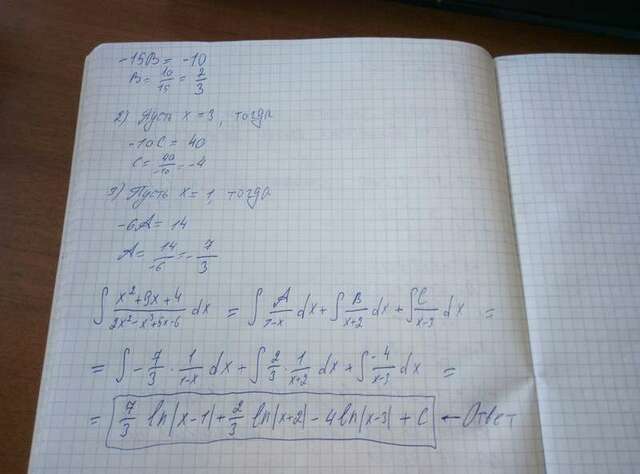 -15B = -10
B = 10/15 = 2/3
2) Пусть x = 3, тогда
-10C = 40
C = 40/-10 = -4
3) Пусть x = 1, тогда
-6A = 14
A = 14/-6 = -7/3
∫ (x²+9x+4)/(2x²-x³+5x-6) dx = ∫ A/(1-x) dx + ∫ B/(x+2) dx + ∫ C/(x-3) dx =
= ∫ -7/3 · 1/(1-x) dx + ∫ 2/3 · 1/(x+2) dx + ∫ -4/(x-3) dx =
= 7/3 ln|x-1| + 2/3 ln|x+2| - 4ln|x-3| + C ← Ответ